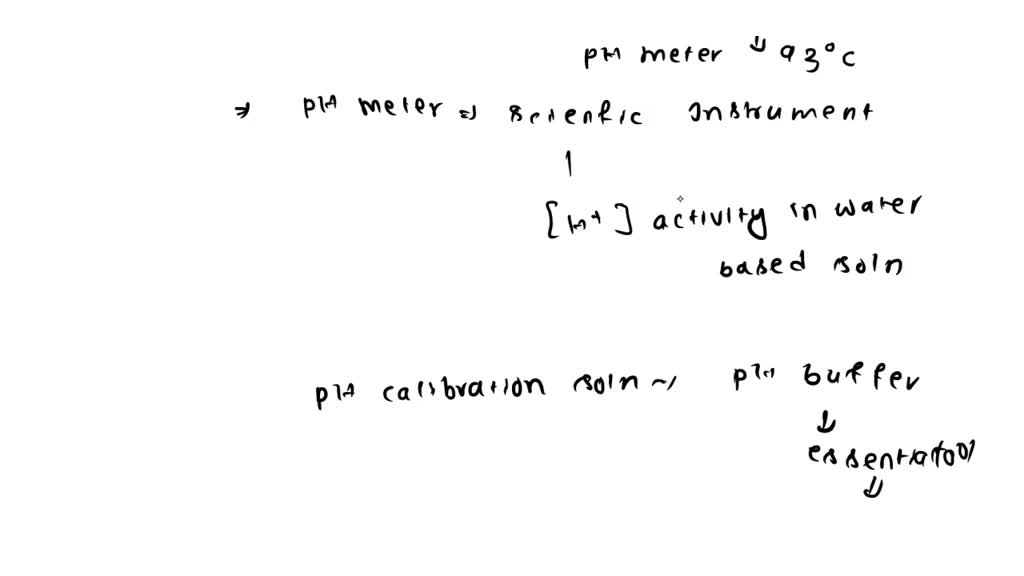 pH meter ↓ 93°C
⇒ pH meter ⇒ scientific Instrument
[H+] activity in water
based soln
pH calibration soln ~ pH buffer
↓
essential tool
↓